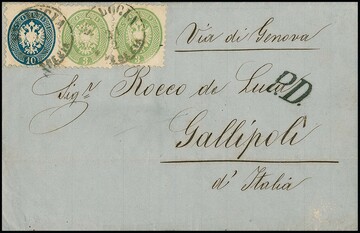 10 3 3
Via di Genova
P.D.
Sig.r Rocco de Luca
Gallipoli
d'Italia